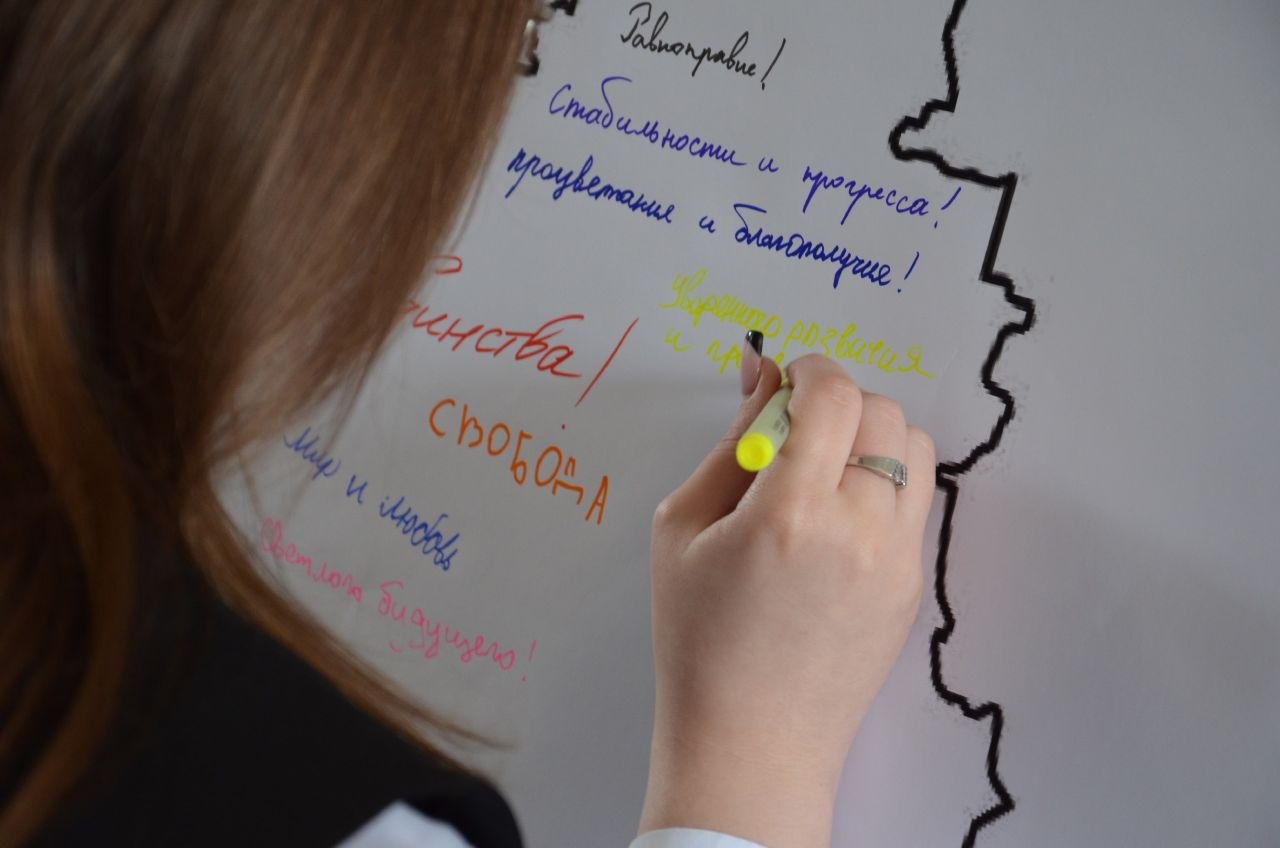 Равноправие!
Стабильности и прогресса!
процветания и благополучия!
развития
и
СВОБОДА
Мир и любовь
светлого будущего!